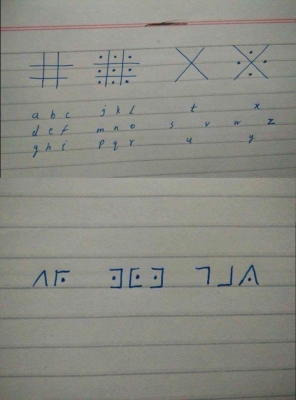 a b c j k l t x
d e f m n o s v w z
g h i p q r u y